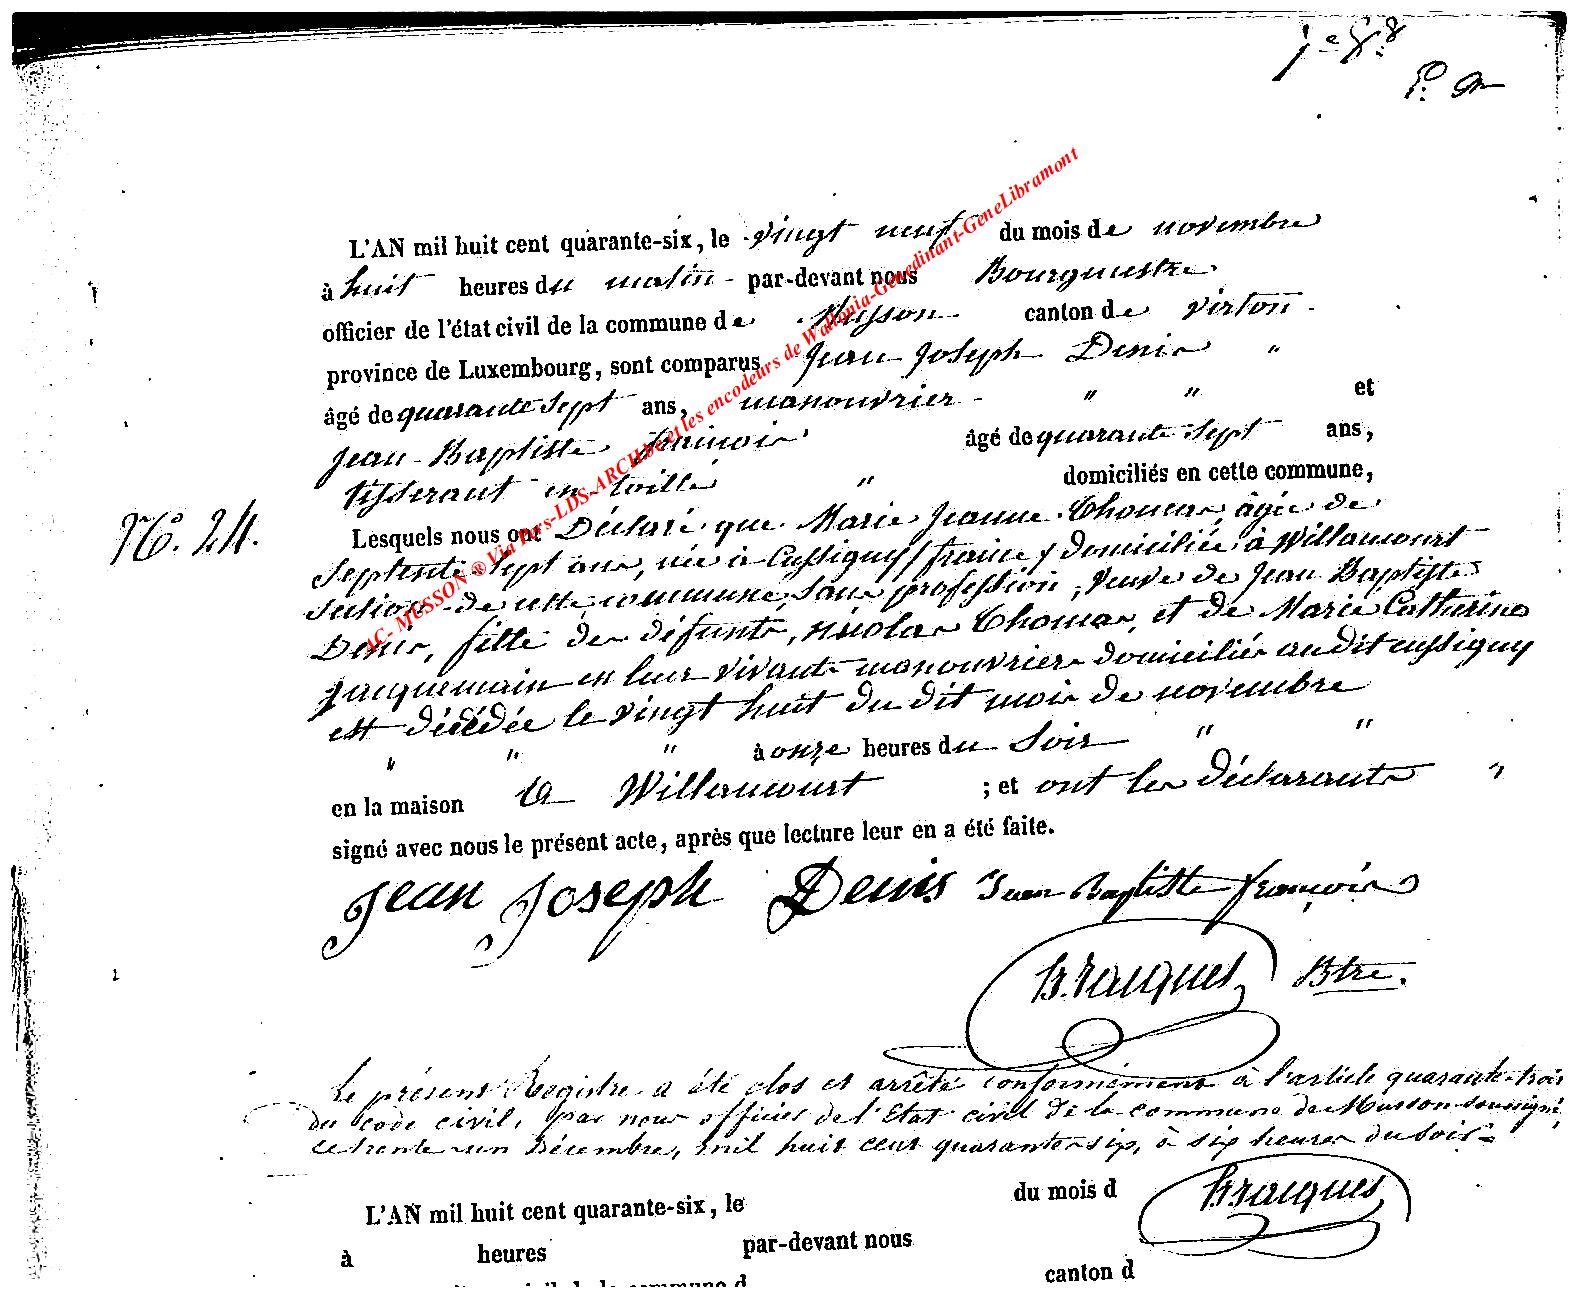 L'AN mil huit cent quarante-six, le vingt neuf du mois de novembre
à huit heures du matin par-devant nous Bourgmestre
officier de l'état civil de la commune de Musson canton de virton
province de Luxembourg, sont comparus Jean Joseph Denis "
âgé de quarante sept ans, manouvrier " " et
Jean Baptiste âgé de quarante sept ans,
tisserant en toille " domiciliés en cette commune,
N°. 24.
Lesquels nous ont Déclaré que Marie Jeanne Thomas, âgée de
septente sept ans, née à Cussigny (france) domiciliée à Willancourt
section de cette commune, sans profession, veuve de Jean Baptiste
Denis, fille des défunts, nicolas Thomas, et de Marie Catherine
Jacquemain en leur vivants manouvriers domiciliés audit cussigny
est décédée le vingt huit du dit mois de novembre
" " " à onze heures du soir " "
en la maison a Willancourt ; et ont les déclarants "
signé avec nous le présent acte, après que lecture leur en a été faite.
Jean Joseph Denis Jean Baptiste françois
Bracques Btre.
Le présent Registre a été clos et arrêté conformément à l'article quarante-trois
du code civil, par nous officier de l'Etat civil de la commune de Musson soussigné,
ce trente-un Décembre, mil huit cent quarante-six, à six heures du soir
Bracques
L'AN mil huit cent quarante-six, le du mois d
à heures par-devant nous
officier de l'état civil de la commune d canton d
AC- MUSSON ® Via Pars-LDS-ARCHbe et les encodeurs de Wallonia-Genedinant-GeneLibramont